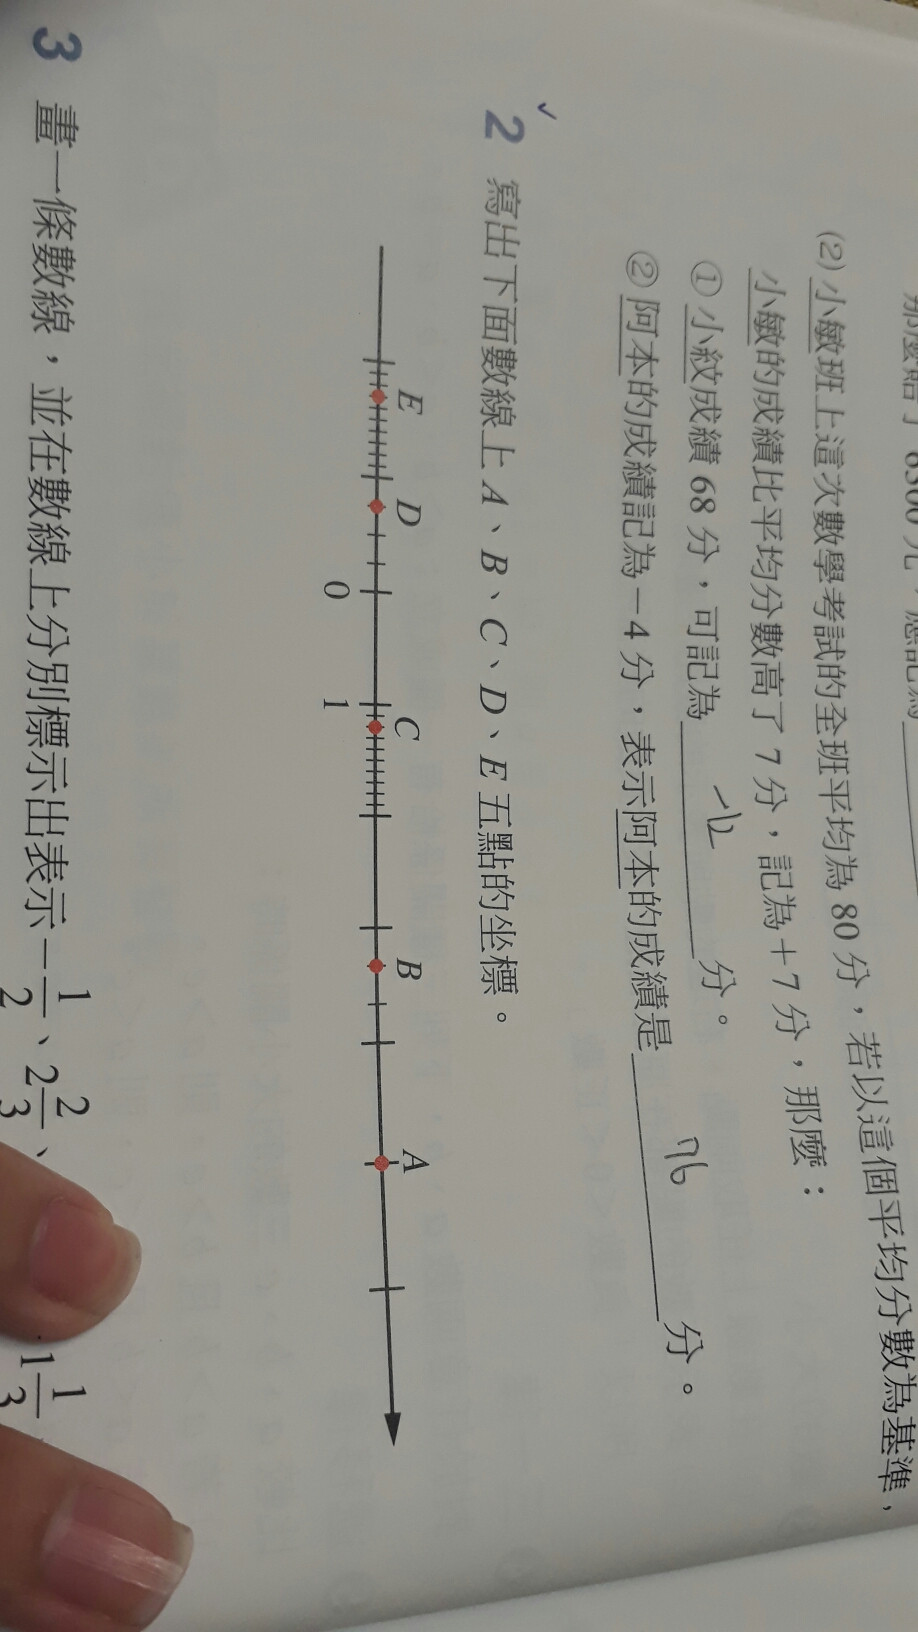 6300元，應記為
(2) 小敏班上這次數學考試的全班平均為 80 分，若以這個平均分數為基準，
小敏的成績比平均分數高了 7 分，記為＋7 分，那麼：
① 小紋成績 68 分，可記為 -12 分。
② 阿本的成績記為－4 分，表示阿本的成績是 76 分。
2 寫出下面數線上 A、B、C、D、E 五點的坐標。
E D C B A
0 1
3 畫一條數線，並在數線上分別標示出表示－1/2、2 2/3、 1 1/3